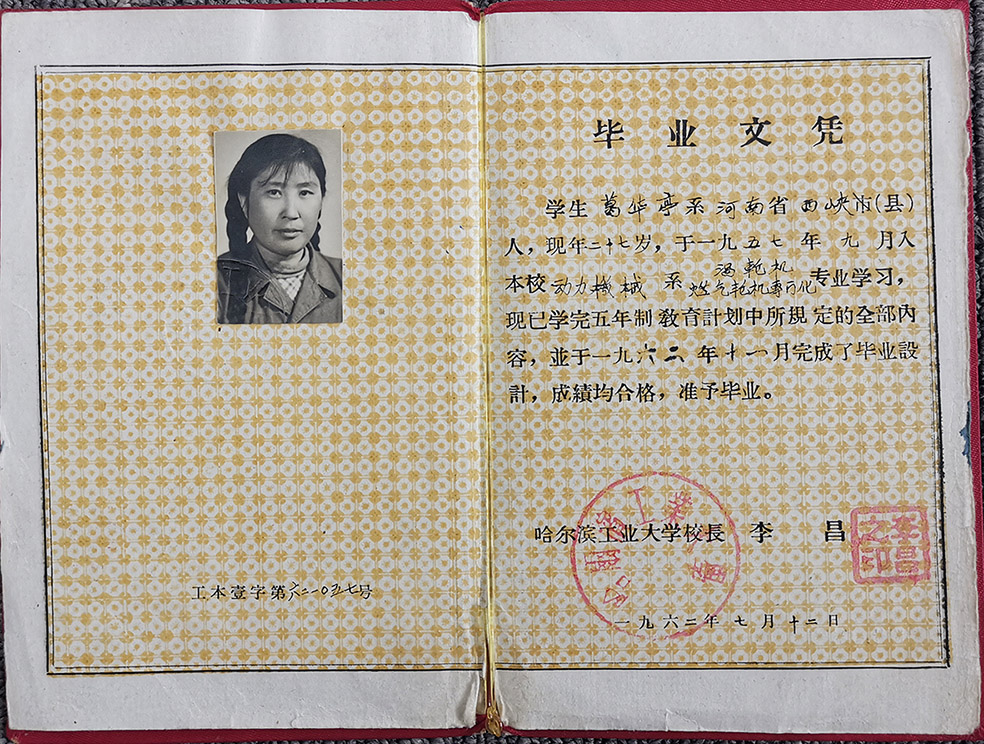 毕业文凭
学生 葛华亭系河南省西峡市(县)
人，现年二十七岁，于一九五七年九月入
本校动力機械系涡轮机
燃气轮机专门化专业学习，
现已学完五年制敎育計划中所規定的全部內
容，並于一九六二年十一月完成了毕业設
計，成績均合格，准予毕业。
哈尔滨工业大学校長 李昌
李昌之印
一九六二年七月十二日
工本壹字第六二一〇五七号